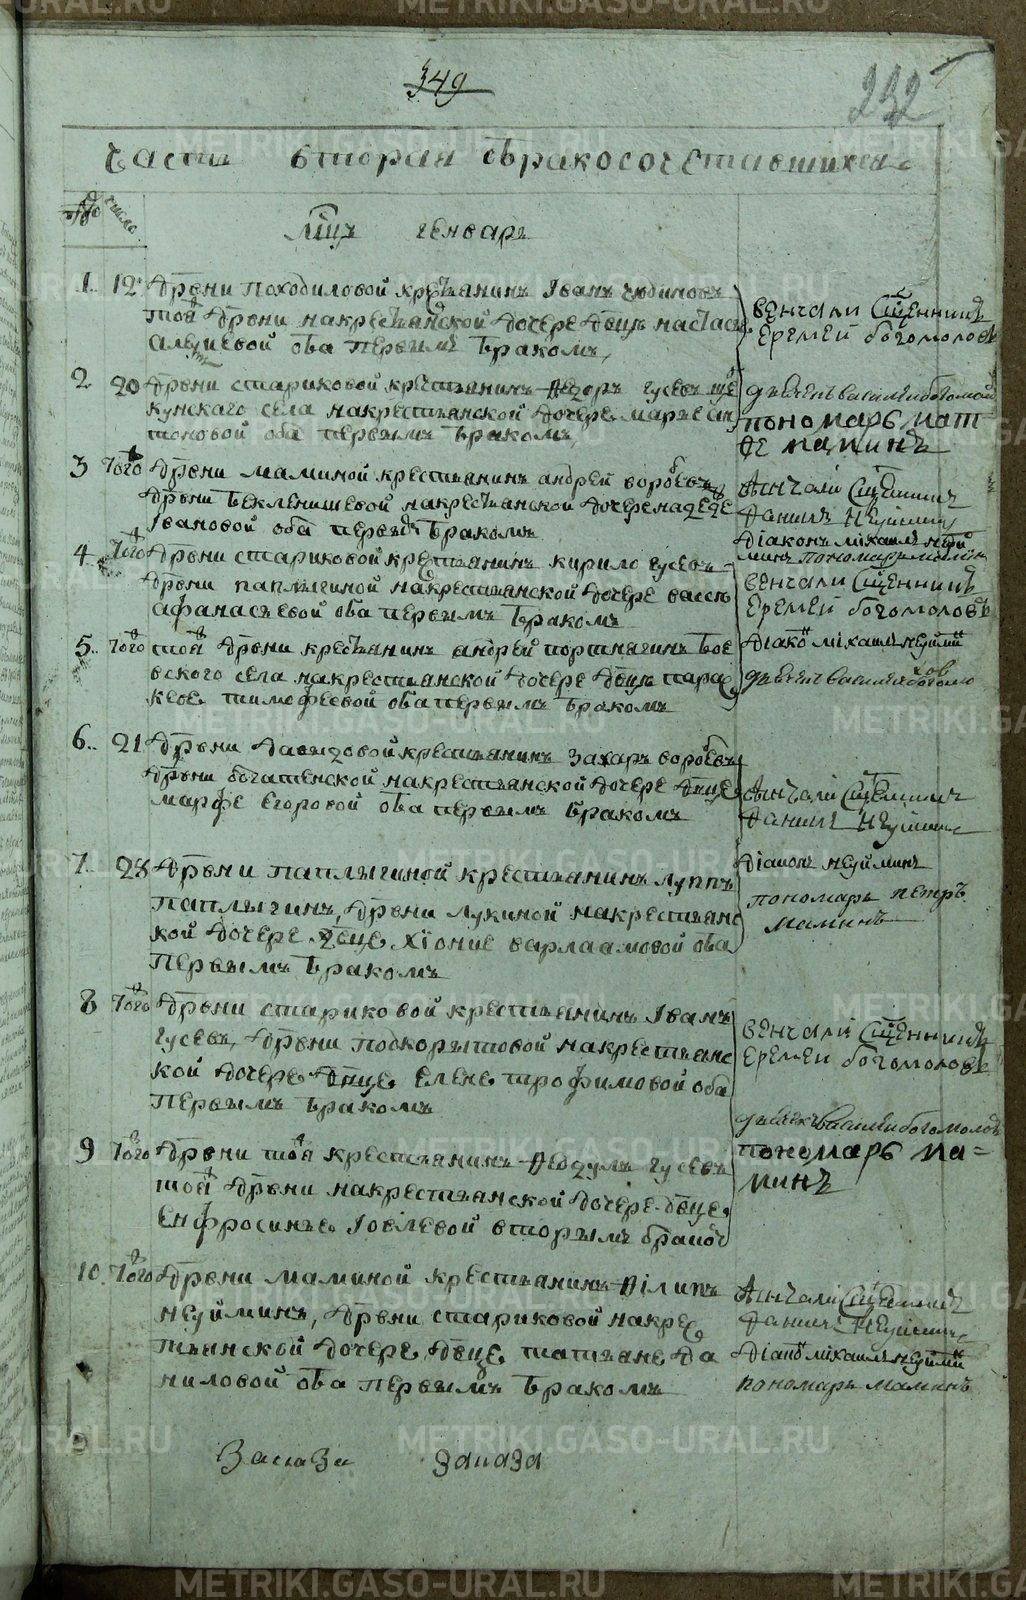 349
232
часть вторая бракосочетавшихся
число
мцъ генварь
1. 12 Дрвни Походиловой крестьянинъ Іванъ
той Дрвни на крестьянской дочере Двцѣ Настась
оба первымъ бракомъ,
венчали Сщенникъ
Еремей Богомоловъ
2 20 Дрвни Стариковой крестьянинъ Ѳедоръ Гусевъ
кунскаго села на крестьянской дочере Марье Ан
тоновой оба первымъ бракомъ
дьячекъ Василей Богомолов
пономарь Мат
ѳе Маминъ
3 того Дрвни Маминой крестьянинъ Андрей Воробьевъ
Дрвни Бекленишевой на крестьянской дочере Надежде
Івановой оба первымъ бракомъ
Вѣнчали Сщенникъ
Даниилъ Неуйминъ
Діаконъ Михаилъ Неуй
минъ пономарь
4 того Дрвни Стариковой крестьянинъ Кирило Гусевъ
Дрвни Паплыгиной на крестьянской дочере Вассе
Афанасьевой оба первымъ бракомъ
венчали Сщенникъ
Еремей Богомоловъ
5. того той Дрвни крестьянинъ Андрей Портнягинъ Бое
вского села на крестьянской дочере Двцѣ Парас
кеве Тимофеевой оба первымъ бракомъ
Діако Михаилъ Неуйми
дьячекъ Василей Богомо
лов
6. 21 Дрвни Давыдовой крестьянинъ Захаръ Воробьевъ
Дрвни Богатенской на крестьянской дочере Двце
Марфе Егоровой оба первымъ бракомъ
Вѣнчали Сщенникъ
Даниилъ Неуйминъ
7. 28 Дрвни Паплыгиной крестьянинъ Луппъ
Паплыгинъ, Дрвни Лукиной на крестьянс
кой дочере Двце Хіоние Варлаамовой оба
первымъ бракомъ
Діаконъ Неуйминъ
пономарь Петръ
Маминъ
8 того Дрвни Стариковой крестьянинъ Іванъ
Гусевъ, Дрвни Подкорытовой на крестьянс
кой дочере Двце Елене Трофимовой оба
первымъ бракомъ
венчали Сщенникъ
Еремей Богомоловъ
9 того Дрвни той крестьянинъ Ѳедулъ Гусевъ
той Дрвни на крестьянской дочере Двце
Енфросинье Іовлевой вторымъ брако
дьячекъ Василей Богомолов
пономарь Ма-
минъ
10. того Дрвни Маминой крестьянинъ Філипъ
Неуйминъ, Дрвни Стариковой на крес
тьянской дочере Двце Татьяне Да
ниловой оба первымъ бракомъ
Вѣнчали Сщенникъ
Даниилъ Неуйминъ
Діако Михаилъ Неуйми
пономарь Маминъ
METRIKI.GASO-URAL.RU